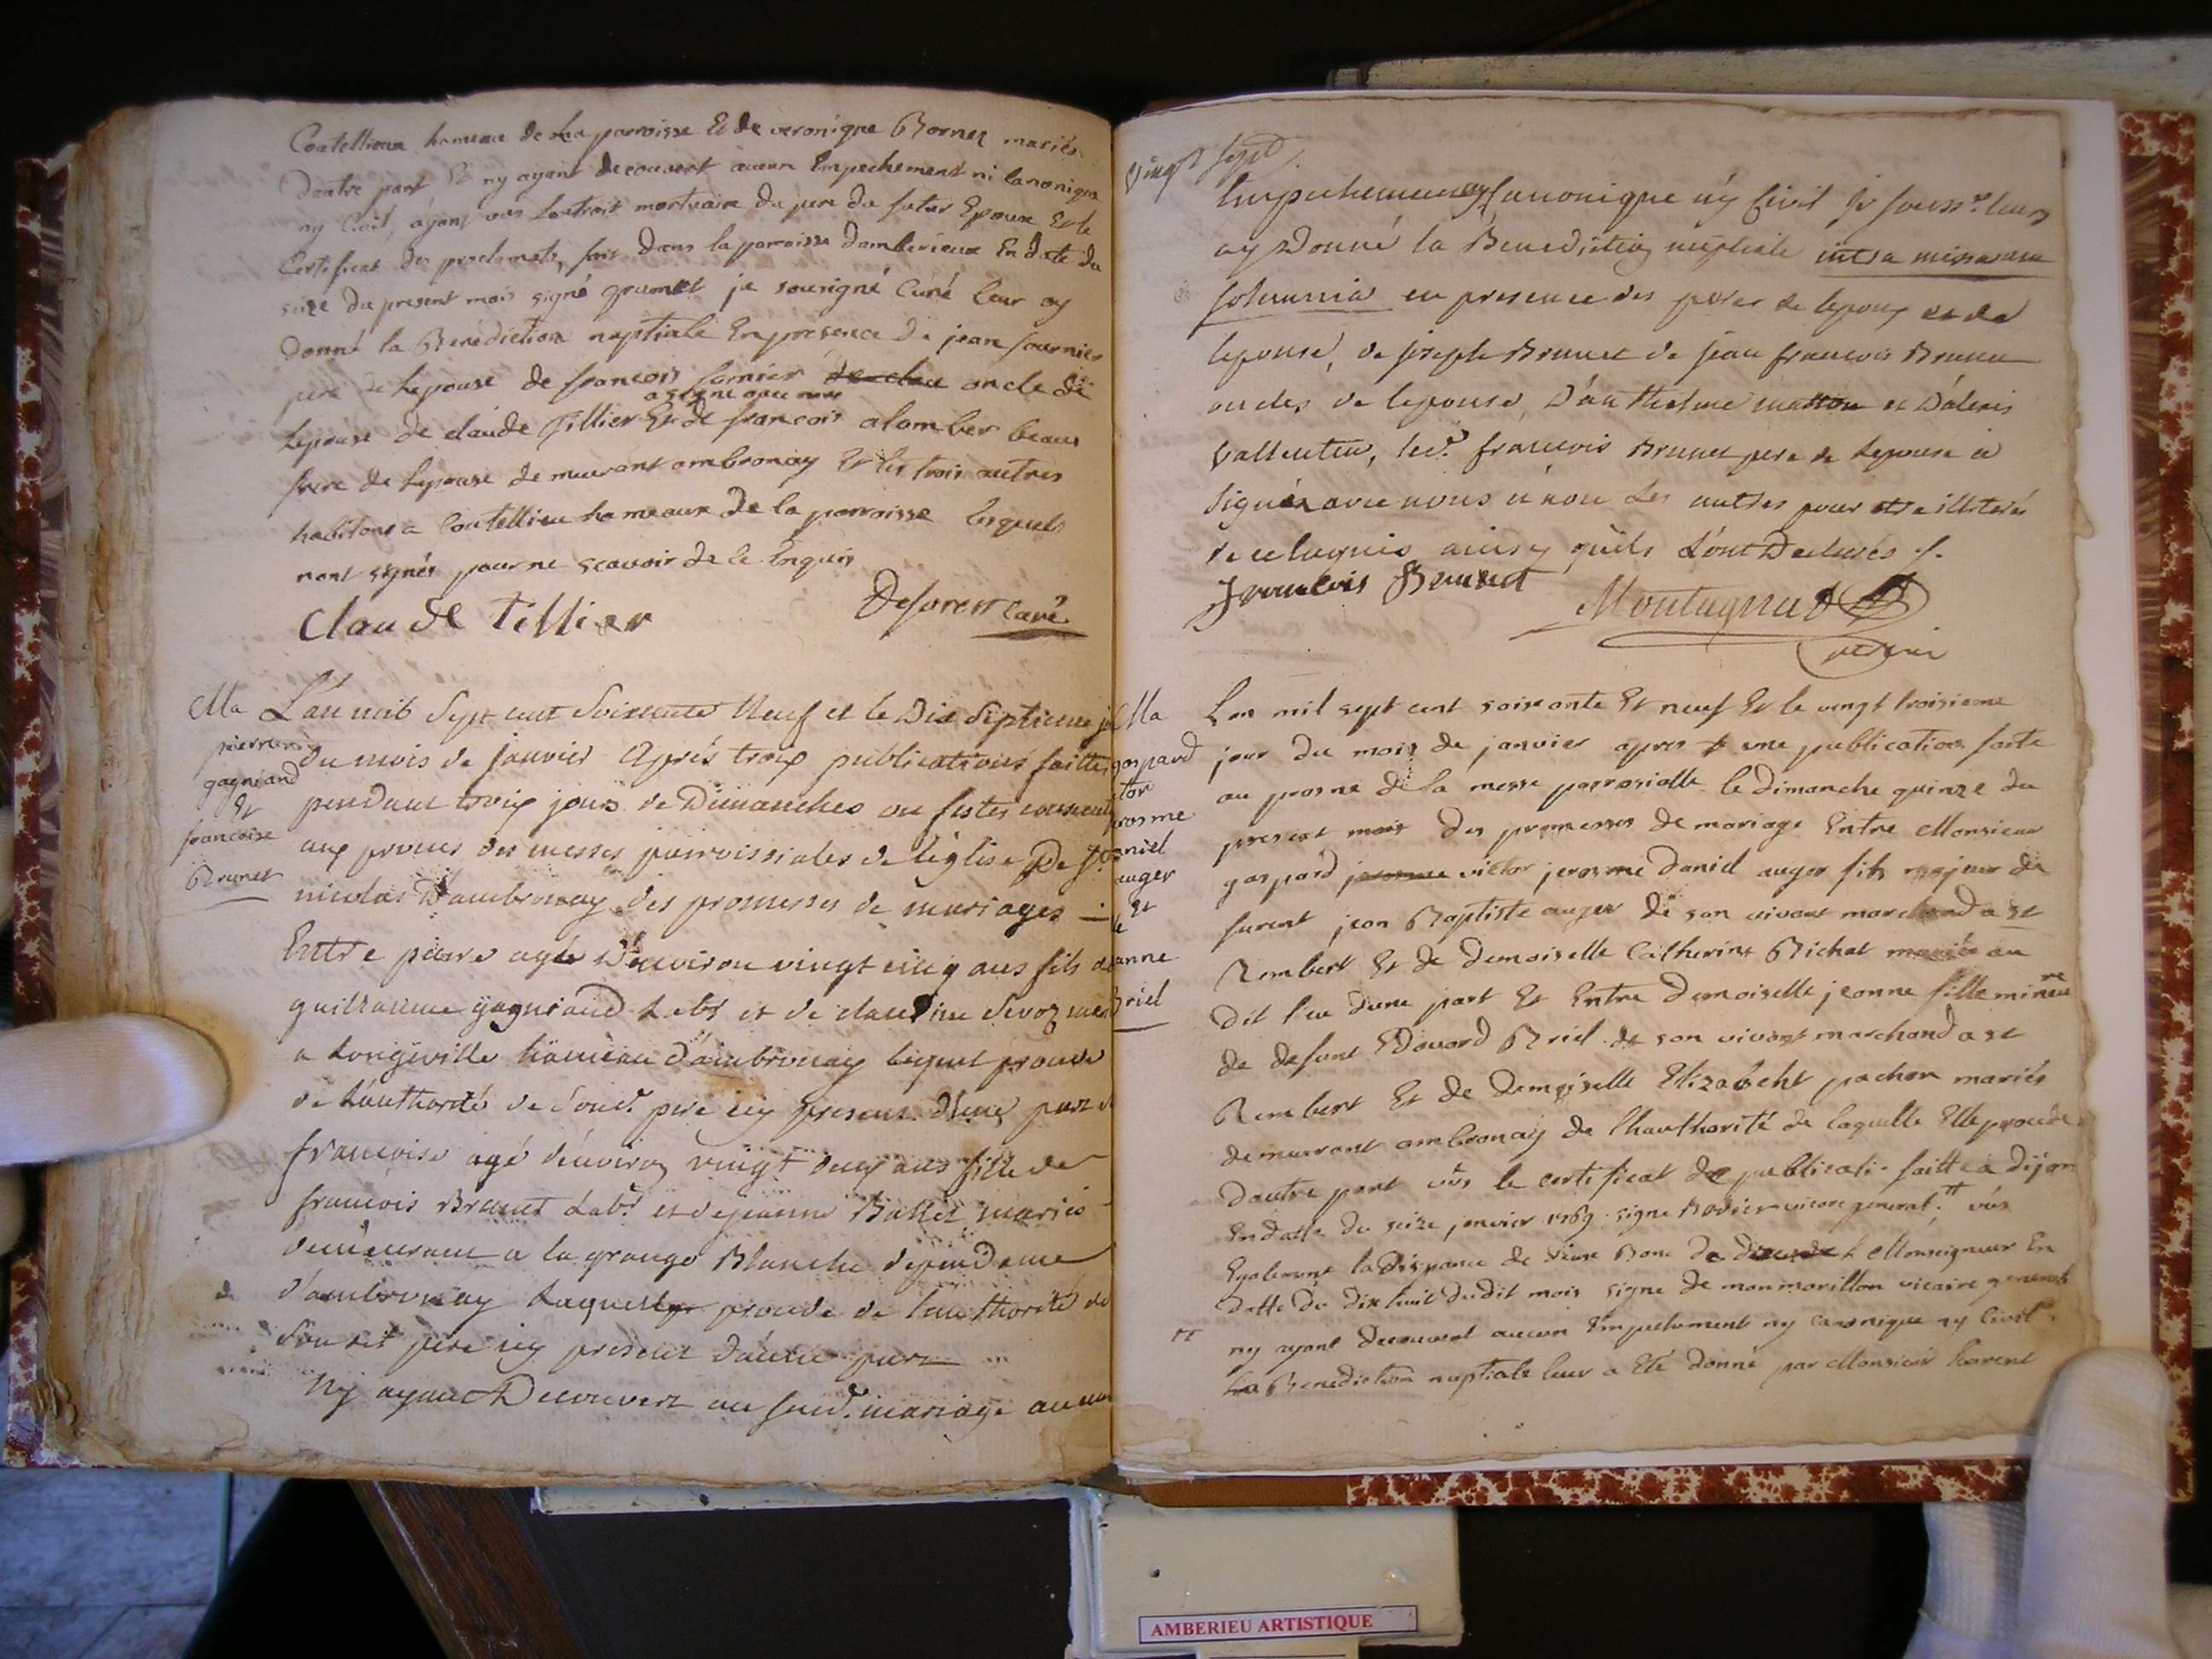 Coutellieux hameau de La parroisse Et de veronique Bornet mariés
Dautre part Et ny ayant decouvert aucun Empechement ni Canonique
ny Civil, ayant vus Lextrait mortuaire du pere du futur Epoux Et le
Certificat des proclamats, fait Dans la parroisse damberieux En date du
seize du present mois signé grumet je sousigné Curé leur ay
Donné la Benediction nuptiale En presence de jean fournier
pere de Lepouse de françois fornier oncle de
a signé avec nous
Lepouse de claude Tillier Et de francois alomber beau
frere de Lepouse de meurant ambronay Et les trois autres
habitans a Coutellieu hameaux De la parroisse lesquels
nont signés pour ne scavoir de ce Enquis
Claude Tillier
Deforest Curé
Ma
pierre
gagniand
Et
francoise
Brunet
L'an mil Sept cent Soixante Neuf et le Dix Septieme
du mois de janvier Aprés trois publications faittes
pendant trois jours de Dimanches ou festes
aux prones des messes parroissiales de l'église De St
nicolas D'ambronay des promesses de mariages
Entre pierre agée D'environ vingt cinq ans fils de
guillaume gagniand Labr et de claudine
a Longeville hameau d'ambronay lequel procede
de L'authorité de Sond. pere icy present D'une part
francoise agé d'environ vingt deux ans fille de
francois Brunet Labr et de jeanne Ballet mariés
demeurant a la grange Blanche dependance
d'ambronay Laquelle procede de l'authorité de
Son dit pere icy present d'autre part
Ny ayant Decouvert au susd. mariage aucun
Vingt sept
Empechement Canonique ny Civil je souss. leurs
ay Donné la Benediction nuptiale intra missarum
solemnia en presence des peres de lepoux et de
lepouse, de joseph Brunet de jean francois Brunet
oncles de lepouse, D'anthelme et D'alexis
Vallentin, led. francois Brunet pere de Lepouse a
Signé avec nous a non Les autres pour etre illiterés
de ce Enquis ainsy qu'ils L'ont Declarés ./.
Francois Brunet
Montagnat
Ma
gaspard
tor
rosme
aniel
auger
Et
anne
Briel
Lan mil sept cent soixante Et neuf Et le vingt troisieme
jour du mois de janvier apres une publication faite
au prosne de la messe parrosialle le dimanche quinze du
present mois des promesses de mariage Entre Monsieur
gaspard victor jerosme Daniel auger fils majeur de
furent jean Baptiste auger de son vivant marchand a st
Rembert Et de Demoiselle Catherine Richat mariés au
Dit lieu Dune part Et Entre Demoiselle jeanne fille mineure
de defunt Edouard Briel de son vivant marchand a st
Rembert Et de Demoiselle Elizabeht pochon mariés
demeurant ambronay de lhauthorité de laquelle Elle procede
Dautre part vûs le certificat de publicati. faitte a dijon
En datte du seize janvier 1769. signé vicaire general. tt vûs
Egalement la dispance de deux Banc De Monseigneur En
datte du dix huit dudit mois signé de monmorillon vicaire general
tt ny ayant decouvert aucun Empechement ny canonique ny Civil.
La Benediction nuptiale leur a Eté donné par Monsieur
AMBERIEU ARTISTIQUE